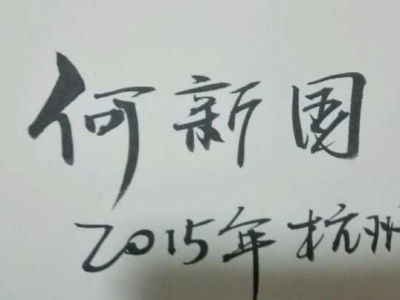 何新国
2015年杭州